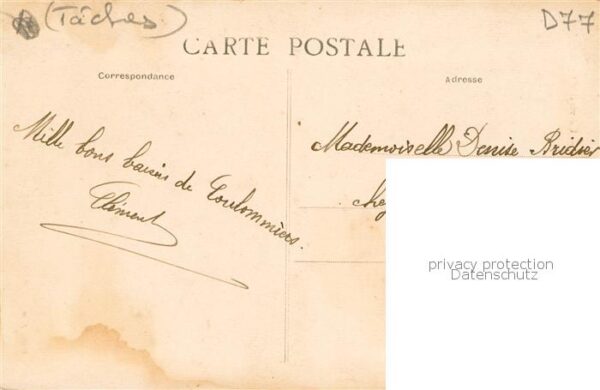 (Tâches)
D77
CARTE POSTALE
Correspondance
Adresse
Mille bons baisers de Coulommiers.
Clément
Mademoiselle Denise Bridier
chez
privacy protection
Datenschutz